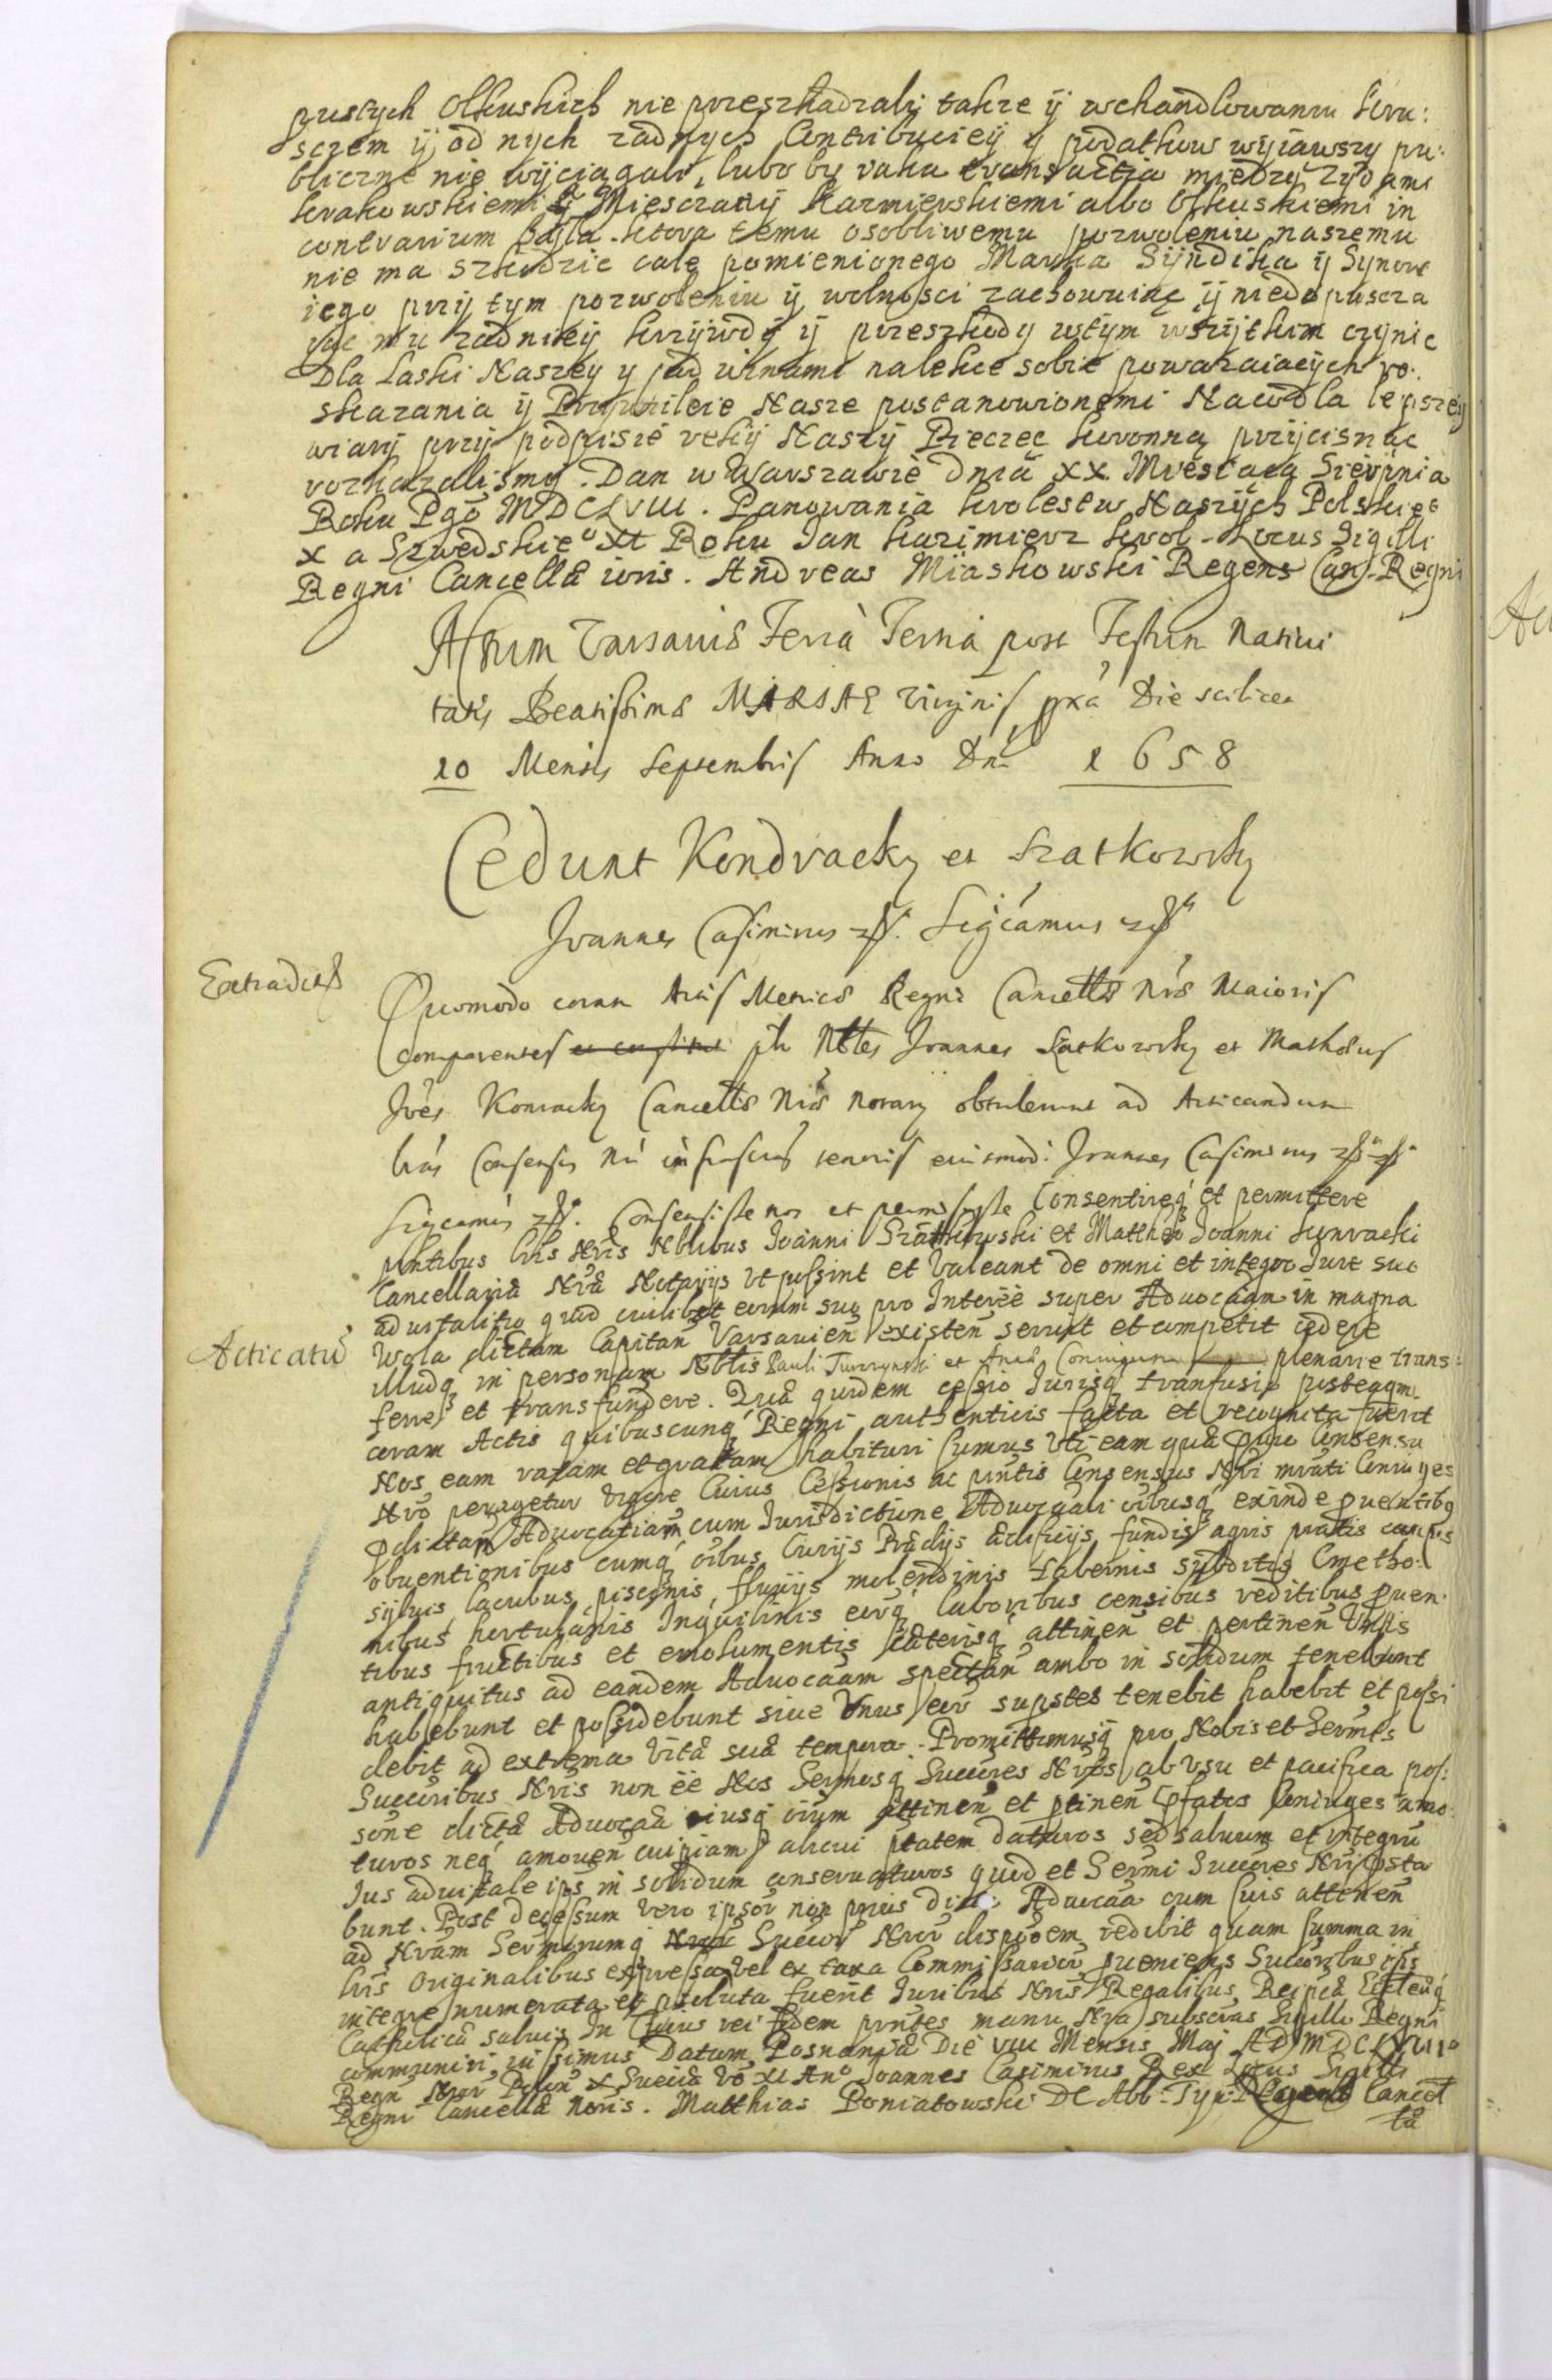 pustych Olkuskich nie przeszkadzali takze ij wchandlowaniu kru:
sczem ij od nych zadnych Contribuciey y podatkow wyiawszy pu:
bliczne nie wyciągali, lubo by iaka transactia między Zydami
krakowskiemi ij Miesczany Kazmierskiemi albo Olkuskiemi in
contrarium była ktora temu osobliwemu pozwoleniu naszemu
nie ma szkodzic cale pomienionego Marka Syndika ij Synow
iego przy tym pozwoleniu ij wolnosci zachowuiąc ij niedopuscza
iąc mu zadnieij krzijwdy ij przeszkody wtym wszijtkim czynic
Dla Łaski Naszey y pod winami nalekce sobie powazaiacych ro:
skazania ij Przywileie Nasze postanowionemi Naco dla lepszey
wiary przy podpisie ręki Naszy Pieczęc koronną przijcisnąc
rozkazalismy. Dan w Warszawie Dnia XX. Miesiąca Sierpnia
Roku Pgo MDCLVIII. Panowania krolestw Naszych Polskieo
X a Szwedskieo XI Roku Jan Kazimierz krol - Locus Sigilli
Regni Cancellæ ioris. Andreas Miaskowski Regens Can. Regni
Actum Varsaviæ Feria Tertia post Festum Nativi
tatis Beatissimæ MARIAE Virginis pxa Die scilicet
10 Mensis Septembris Anno Dni 1658
Cedunt Kondracky et Szatkowsky
Joannes Casimirus . Sigcamus
Extradict
Quomodo coram Actis Metrices Regni Cancellæ Nræ Maioris
Comparentes Nbles Joannes Satkowsky et Mathæus
Joes Konracky Cancellæ Nræ Notarij obtulerunt ad Acticandum
lras Consensus Nri tenoris eiusmodi Joannes Casimirus
Sigcamus . Consensisse nos et permisisse Consentireq et permittere
pntibus lris Nris Nblibus Joanni Szatkowski et Matthæo Joanni kunracki
Cancellariæ Nræ Notarijs ut possint et valeant de omni et integro Jure suo
advitalitio quod cuilibet eorum suo pro Interee super Advocaam in magna
Acticatũ
Wola dictam Capitan Varsavien existen servit et competit cedere
illudq in personam Nblis Pauli Conjugum plenarie trans:
ferre et transfundere. Quæ quidem cessio Jurisq transfusio posteaqm
coram Actis quibuscunq Regni authenticis facta et recognita fuerit
Nos eam ratam et gratam habituri sumus uti eam quæ Consensu
Nro peragetur vigore Cuius Cessionis ac pntis Consensus Nri mrati Coniuges
pdictam Advocatiam cum Jurisdictione Advocali oibusq exinde puentibq
obventionibus cumq oibus Curijs Prædijs ædificijs fundis agris pratis campis
sylvis lacubus piscinis fluvijs molendinis tabernis subditis Cmetho:
nibus hortulanis Inquilinis eorq laboribus censibus reditibus puen:
tibus fructibus et emolumentis cæterisq attinen et pertinen
antiquitus ad eandem Advocaam spectan ambo in solidum tenebunt
habebunt et possidebunt sive Unus eor supstes tenebit habebit et possi
debit ad extrema vitæ suæ tempora. Promittimusq pro Nobis et Sermis
Succribus Nris non ee Nos Sermosq Succres Nros ab usu et pacifica pos:
sone dictæ Advocaæ eiusq oium attinen et ptinen pfatos Coniuges amo:
turos neq amoven cuipiam alicui ptatem daturos sed salvum et integru
Jus advitale ips in solidum conservaturos quod et Sermi Succres Nri psta
bunt. Post decessum vero ipsor non prius Advocaa cum suis attenen
ad Nram Sermorumq Succor Nror dispoem redibit quam summa in
lris Originalibus expressa vel ex taxa Commissarior pueniens Succoribus ips
integre numerata et psoluta fuerit Juribus Nris Regalibus Reipcæ Ecclææq
Catholicæ salvis In Cuius rei fidem pntes manu Nra subscras Sigillo Regni
communiri iussimus Datum Posnaniæ Die VIII Mensis Maj AD MDCLVIIIo
Regn Nror Polon X Sueciæ vo XI Ano Joannes Casimirus Rex Locus Sigilli
Regni Cancellæ noris. Matthias Poniatowski DC Abb: Tyn: Regens Cancel
læ